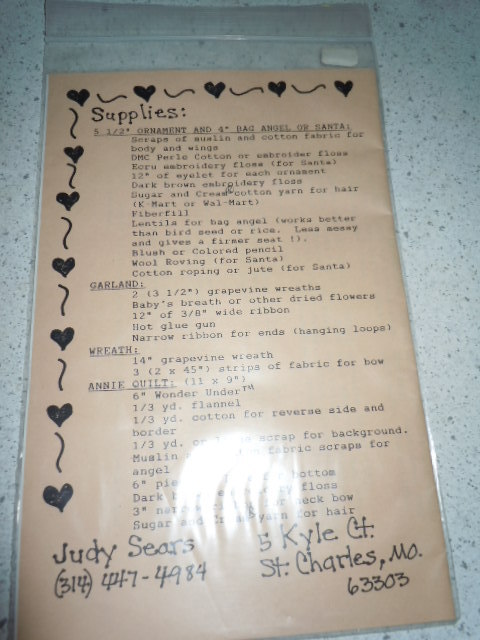 Supplies:
5 1/2" ORNAMENT AND 4" BAG ANGEL OR SANTA:
Scraps of muslin and cotton fabric for
body and wings
DMC Perle Cotton or embroider floss
Ecru embroidery floss (for Santa)
12" of eyelet for each ornament
Dark brown embroidery floss
Sugar and Cream cotton yarn for hair
(K-Mart or Wal-Mart)
Fiberfill
Lentils for bag angel (works better
than bird seed or rice. Less messy
and gives a firmer seat !).
Blush or Colored pencil
Wool Roving (for Santa)
Cotton roping or jute (for Santa)
GARLAND:
2 (3 1/2") grapevine wreaths
Baby's breath or other dried flowers
12" of 3/8" wide ribbon
Hot glue gun
Narrow ribbon for ends (hanging loops)
WREATH:
14" grapevine wreath
3 (2 x 45") strips of fabric for bow
ANNIE QUILT: (11 x 9")
6" Wonder Under™
1/3 yd. flannel
1/3 yd. cotton for reverse side and
border
1/3 yd. or scrap for background.
Muslin fabric scraps for
angel
6" bottom
Dark floss
3" neck bow
Sugar yarn for hair
Judy Sears
(314) 447-4984
5 Kyle Ct.
St. Charles, Mo.
63303